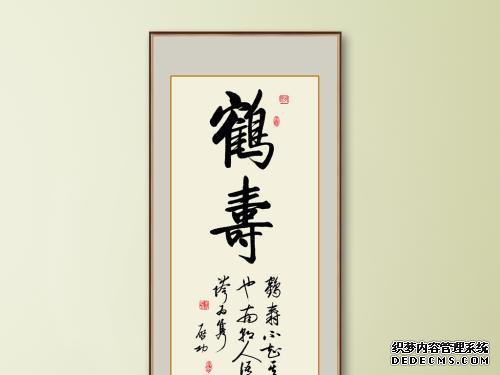 鶴壽
鶴壽不知其
也南朝人
启功
织梦内容管理系统
DEDECMS.COM